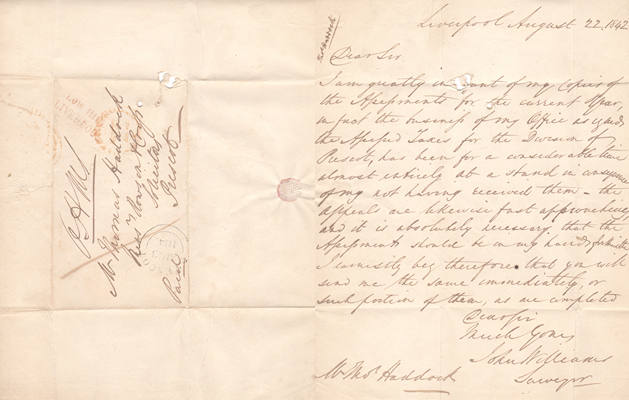 Liverpool August 22. 1842
Dear Sir
I am greatly in want of my Copies of
the Assessments for the current Year,
in fact the business of my Office as regards
the Assessed Taxes for the Division of
Prescot, has been for a considerable time
almost entirely at a stand in consequence
of my not having received them – the
appeals are likewise fast approaching
and it is absolutely necessary that the
Assessments should be in my hands
I earnestly beg therefore that you will
send me the same immediately, or
such portion of them, as are completed
Dear Sir
Yours
John Williams
Surveyor
Mr Thos Haddock
Mr Thomas Haddock
Prescot
Paid